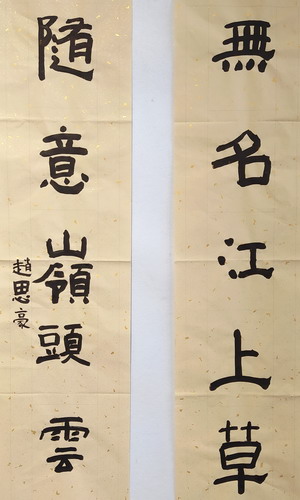 無名江上草
随意嶺頭雲
趙思豪